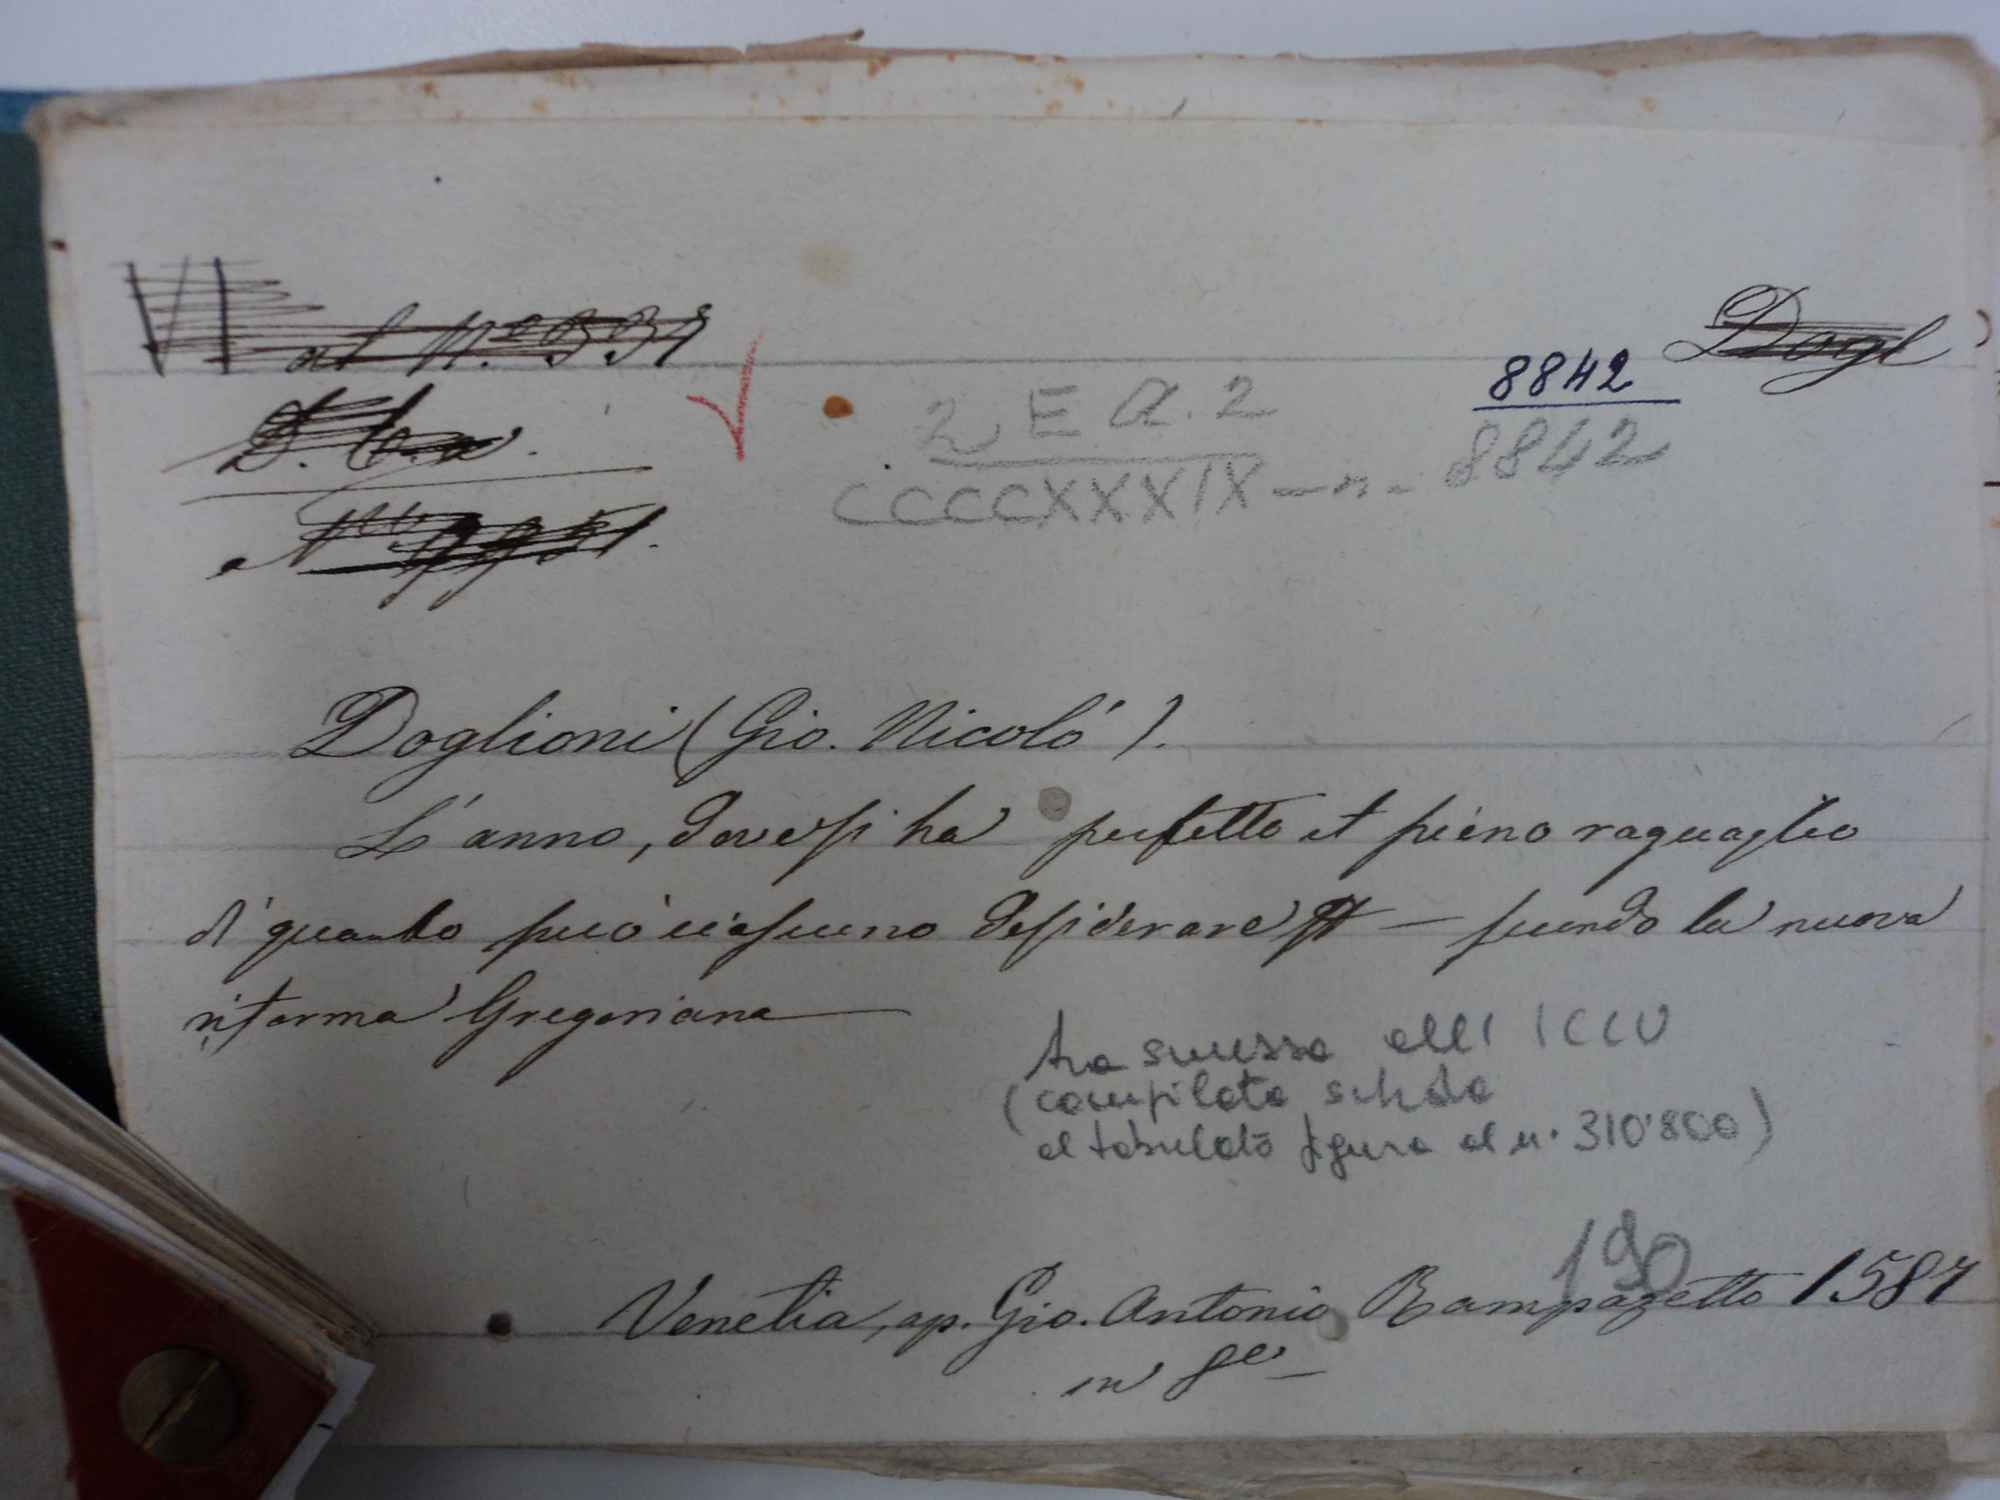 VI al N.º 337
Dogl
8842
2 E a. 2
CCCCXXXIX - n. 8842
Doglioni (Gio. Nicoló).
L'anno, dove si ha perfetto et pieno raguaglio
di quanto può ciascuno desiderare — secondo la nuova
riforma Gregoriana
trasmessa all' ICCU
(compilata scheda
al tabulato figura al n. 310'800)
190
Venetia, ap. Gio. Antonio Rampazetto 1587
in 8º